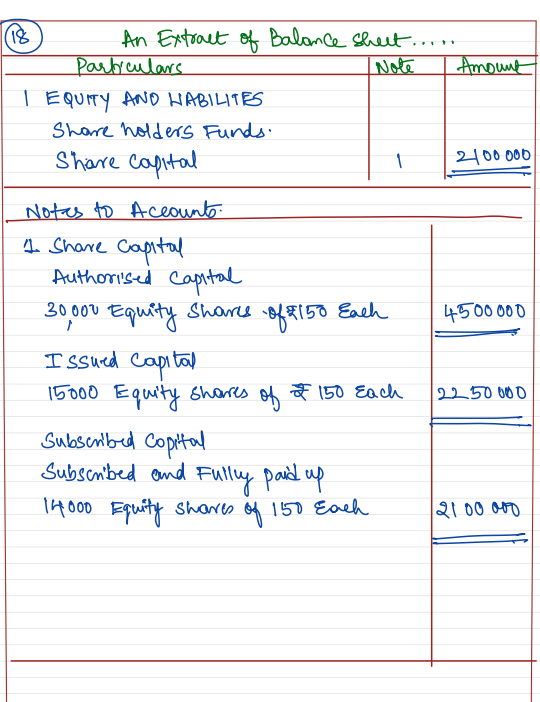 18 An Extract of Balance sheet.....
Particulars Note Amount
1 EQUITY AND LIABILITES
Share holders Funds.
Share Capital 1 2100 000
Notes to Accounts.
1 Share Capital
Authorised Capital
30,000 Equity Shares of ₹150 Each 4500000
Issued Capital
15000 Equity shares of ₹ 150 Each 2250 000
Subscribed Capital
Subscribed and Fully paid up
14000 Equity shares of 150 Each 2100 000